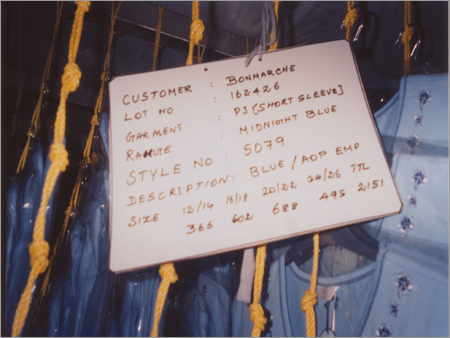 CUSTOMER : BONMARCHE
LOT NO : 162426
GARMENT : PJ [SHORT SLEEVE]
RANGE : MIDNIGHT BLUE
STYLE NO : 5079
DESCRIPTION: BLUE / AOP EMP
SIZE 12/14 16/18 20/22 24/26 TTL
366 602 688 495 2151